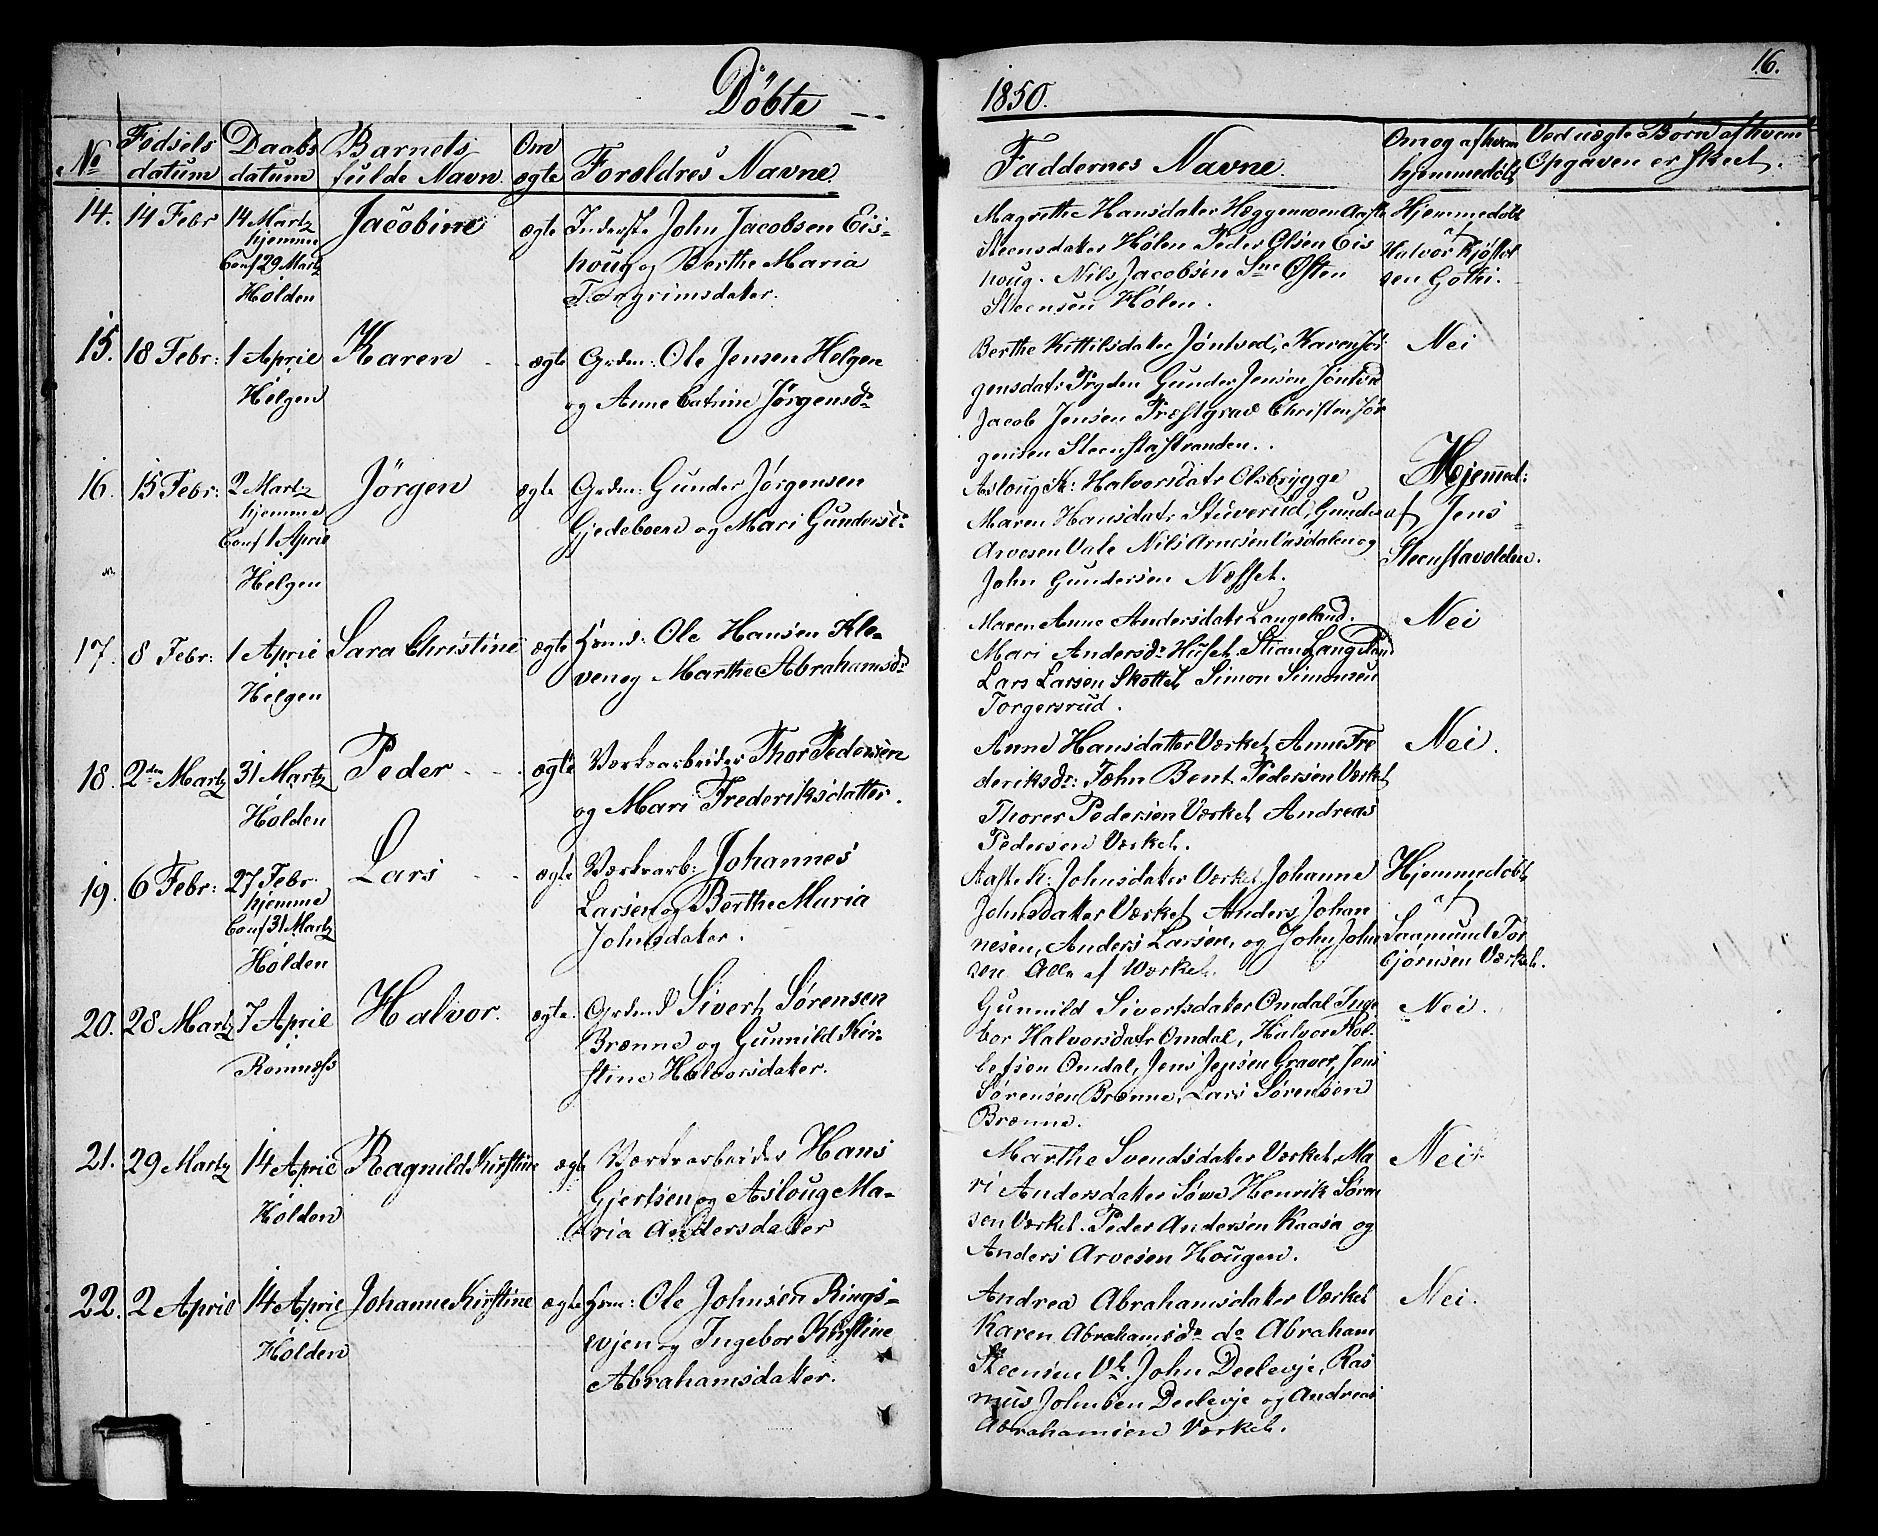 16.
Döbte
1850.
No
Fødsels datum
Daabs datum
Barnets fulde Navn
Om ægte
Forældres Navne
Faddernes Navne.
Om og af hvem hjemmedøbt
Ved uægte Børn af hvem Opgaven er skeet.
14.
14 Febr
14 Martz
hjemme
Conf 29 Martz
Holden
Jacobine
ægte
Inderste John Jacobsen Eis-
houg og Berthe Maria
Torgrimsdater.
Magrethe Hansdater Hæggenoen Aaste
Steensdater Holen Peder Olsen Eis
houg. Nils Jacobsen Sne Østen
Steensen Holen.
Hjemmedöbt
af
Halvor Kjøstol
sen Gotei.
15.
18 Febr:
1 April
Helgen
Karen
ægte
Grdm: Ole Jensen Helgen
og Anne Catrine Jørgensdr
Berthe Kittilsdater Jøntved, Karen Jør
gensdatr Pryden Gunder Jensen Jøntved
Jacob Jensen Præstgrav Christen Jør
gensen Steenstastranden.
Nei
16.
15 Febr:
2 Martz
hjemme
Conf 1 April
Helgen
Jörgen
ægte
Grdm: Gunder Jørgensen
Gjedeboen og Mari Gundersdr
Asloug K: Halvorsdatr Olsbrygge
Maren Hansdatr Stuverud, Gunder
Arvesen Vale Nils Arnesen Aasdalen og
John Gundersen Næsset.
Hjemmed:
af Jens
Steenstavolden.
17.
8 Febr:
1 April
Helgen
Sara Christine
ægte
Hsmd: Ole Hansen Kle-
ven og Marthe Abrahamsdr
Maren Anne Andersdatr Langeland.
Mari Andersdr Huset. Stian Langeland
Lars Larsen Skottet, Simon Simonsen
Torgersrud.
Nei
18.
2den Martz
31 Martz
Holden
Peder
ægte
Værksarbeider Thor Pedersen
og Mari Frederiksdatter.
Anne Hansdatter Værket, Anne Fre
deriksdr: Fæhn Bent Pedersen Værket
Thorer Pedersen Værket Andreas
Pedersen Værket.
Nei.
19.
6 Febr:
27 Febr.
hjemme
Conf 31 Martz
Holden
Lars
ægte
Værksarb: Johannes
Larsen og Berthe Maria
Johnsdater.
Aaste K: Johnsdater Værket Johanne
Johnsdatter Værket Anders Johan
nesen, Anders Larsen, og John John
sen Alle af Værket.
Hjemmedöbt
af
Saamund Tor
bjørnsen Værket.
20.
28 Martz
7 April
Romnæss
Halvor.
ægte.
Grdmd Sivert Sørensen
Brænne og Gunnild Kir-
stine Halvorsdater.
Gunnild Sivertsdater Omdal Inge
bor Halvorsdatr Omdal, Halvor Kol-
lefsen Omdal, Jens Jensen Graver, Jens
Sørensen Brænne, Lars Sørensen
Brænne.
Nei.
21.
29 Martz
14 April
Holden
Ragnild Kirstine
ægte
Værksarbeider Hans
Gjertsen og Asloug Ma-
ria Andersdatter
Marthe Svendsdater Værket, Ma
ri Andersdatter Søve Henrik Søren
sen Værket. Peder Andersen Kaasa og
Anders Arvesen Hougen.
Nei
22.
2 April
14 April
Holden
Johanne Kirstine
ægte
Hsm: Ole Johnsen Rings-
evjen og Ingebor Kirstine
Abrahamsdater.
Andrea Abrahamsdater Værket
Karen Abrahamsdr do Abraham
Steensen Vk. John Deelevje, Ras
mus Johnsen Deelevje og Andreas
Abrahamsen Værket.
Nei.